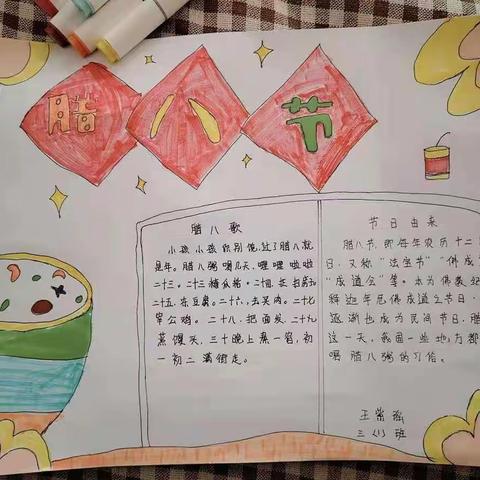 腊八节
腊八歌
小孩小孩你别馋,过了腊八就
是年。腊八粥喝几天,哩哩啦啦
二十三。二十三糖瓜粘。二十四,扫房子
二十五,冻豆腐。二十六,去买肉。二十七
宰公鸡。二十八,把面发,二十九
蒸馒头,三十晚上熬一宿,初
一初二满街走。
节日由来
腊八节,即每年农历十二
日,又称“法宝节”“佛成
“成道会”等。本为佛教纪
释迦牟尼佛成道之节日,
逐渐也成为民间节日,腊
这一天,我国一些地方都
喝腊八粥的习俗。
王 瑶
三(1)班